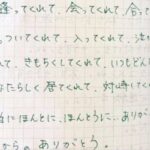 逢ってくれて、会ってくれて、合って
ついてくれて、入ってくれて、
て、きもちくしてくれて、いつもど
なたらしく居てくれて、対峙してく
にほんとに、ほんとうに、ありが
から。ありがとう。